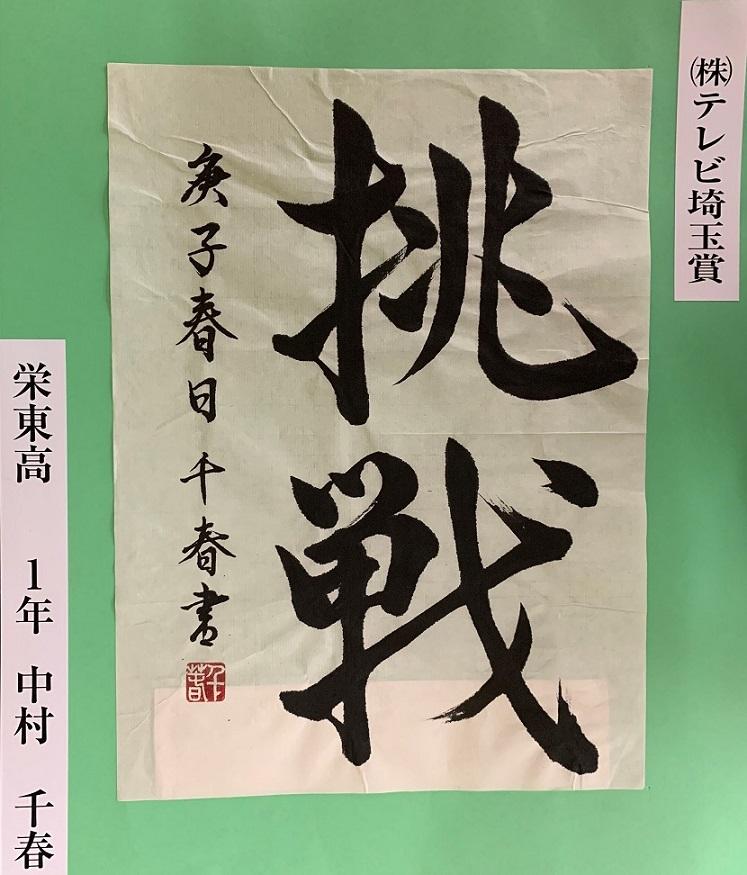 ㈱テレビ埼玉賞
挑戦
庚子春日 千春書
千春
栄東高 1年 中村 千春